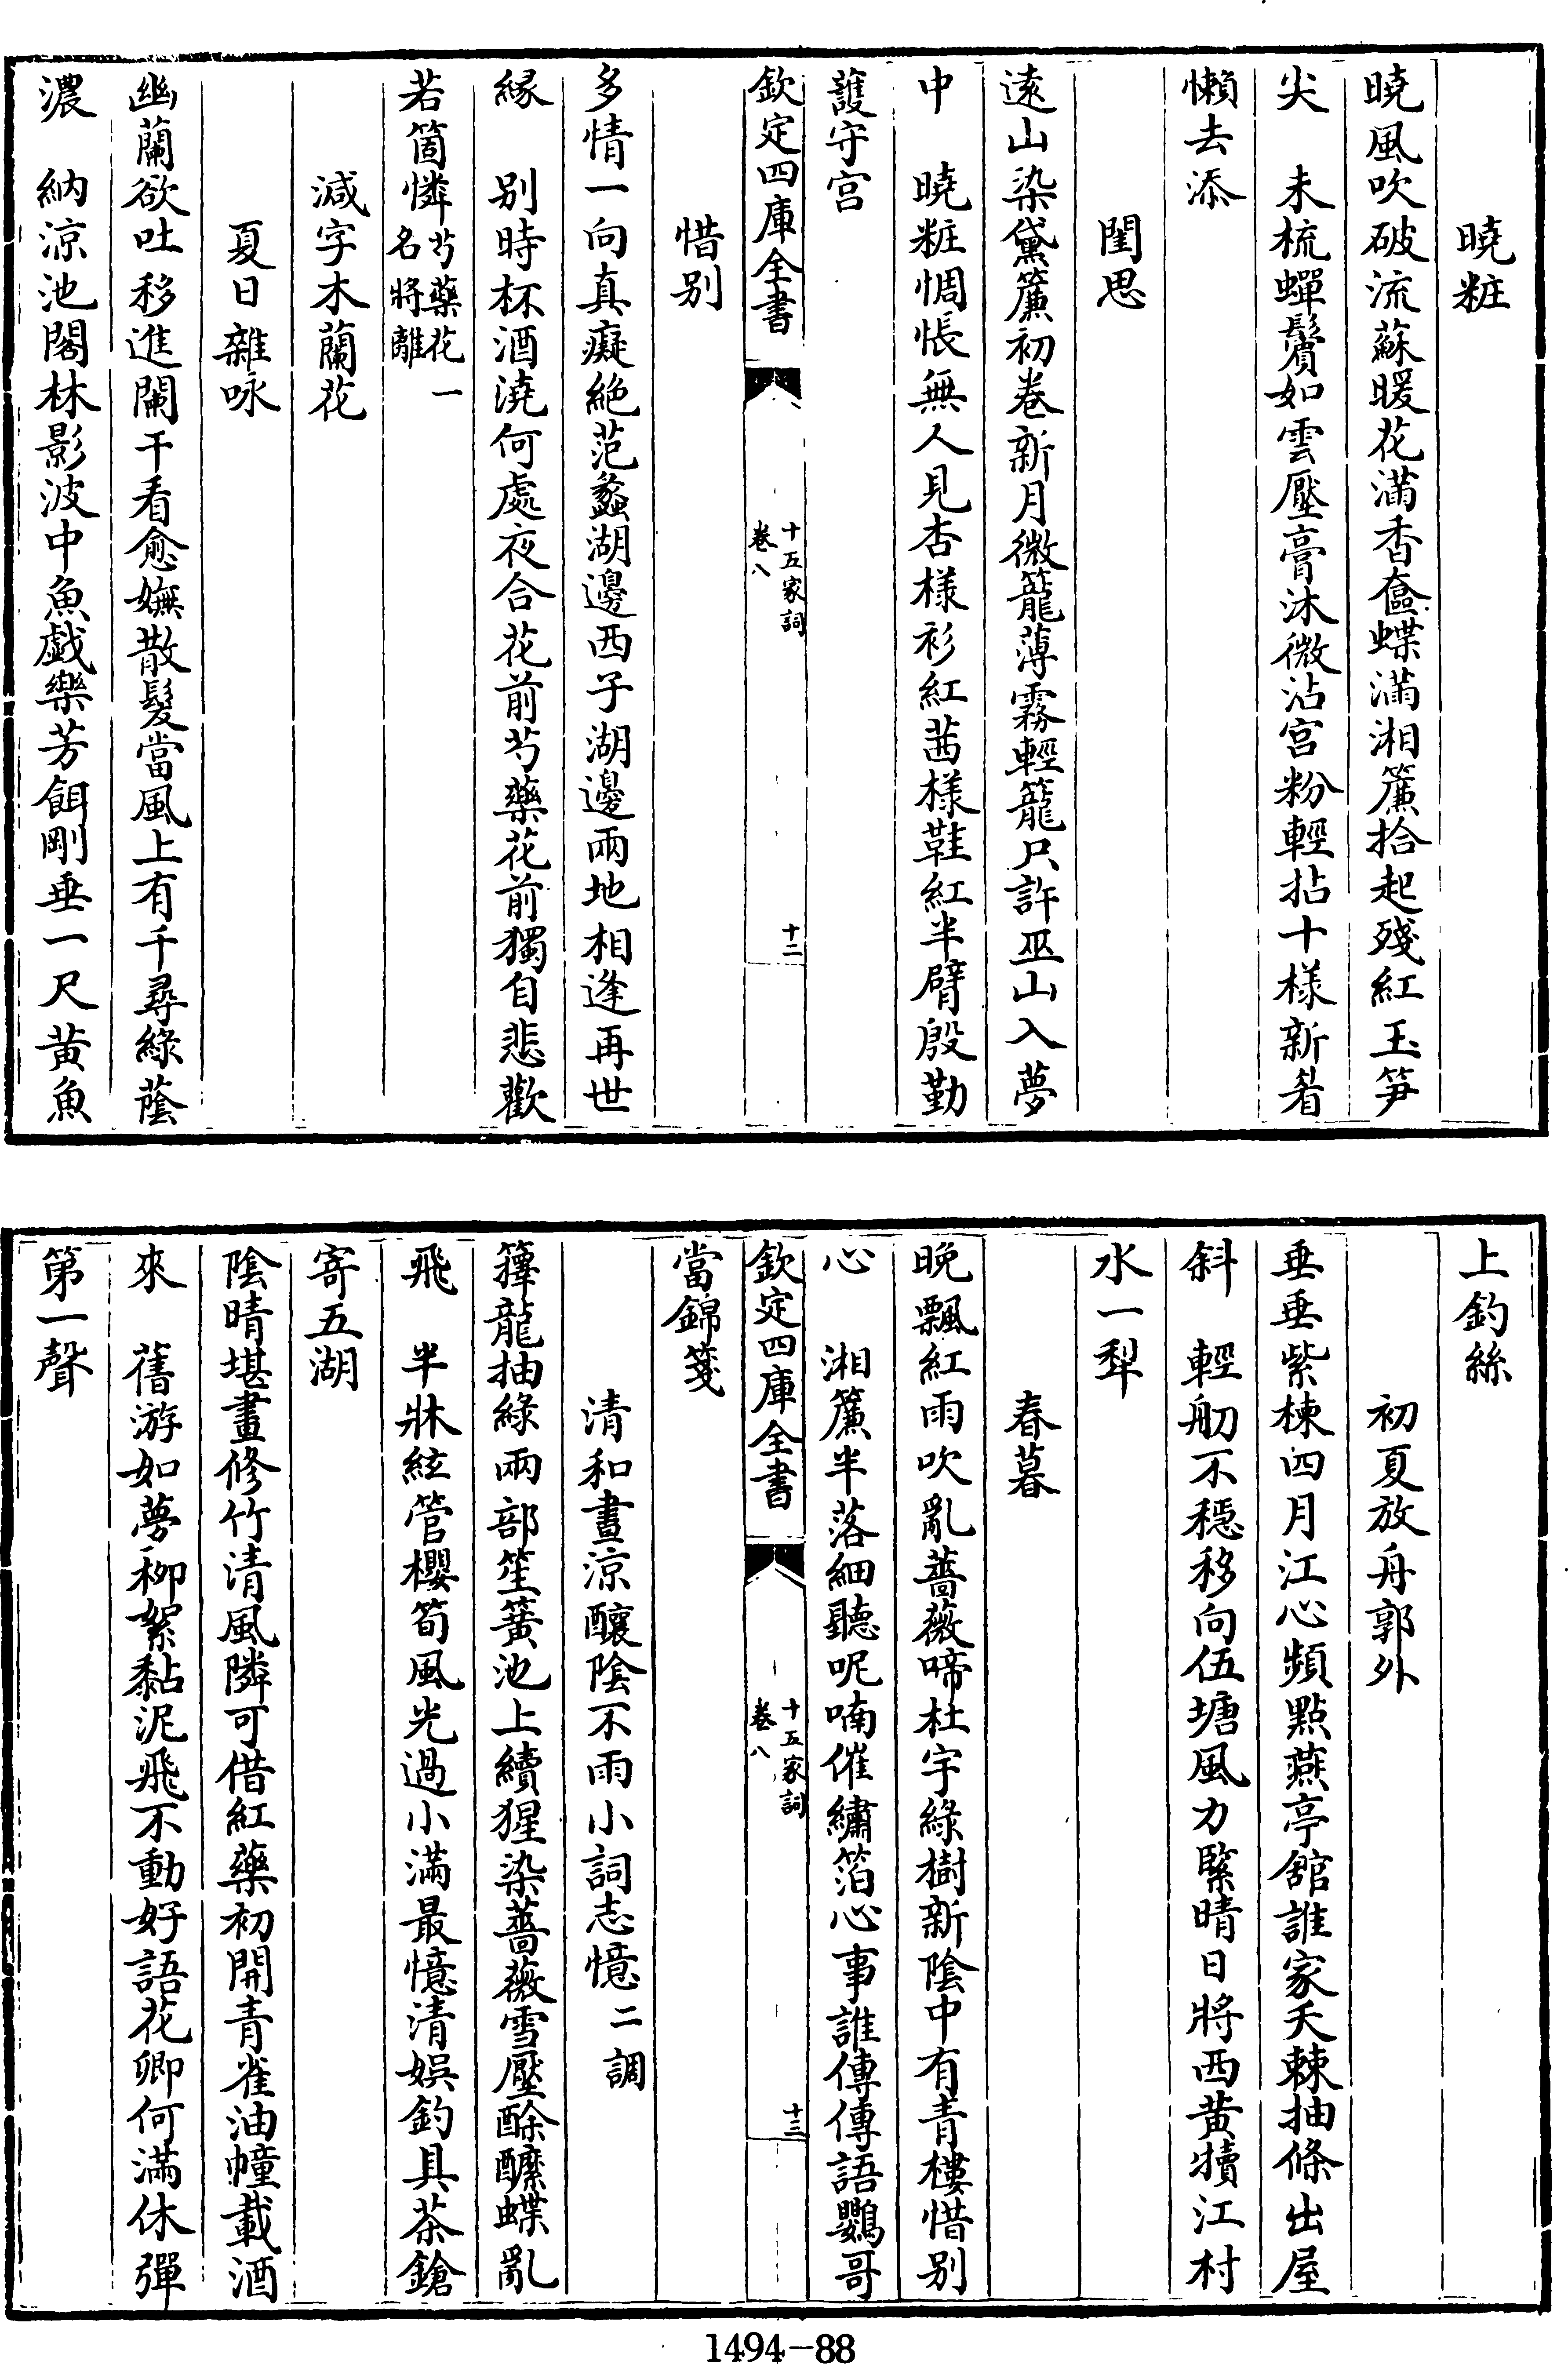 曉粧
曉風吹破流蘇暖花滿香奩蝶滿湘簾拾起殘紅玉笋
尖　未梳蟬鬢如雲壓膏沐微沾宮粉輕拈十樣新眉
懶去添
閨思
遠山染黛簾初卷新月微籠薄霧輕籠只許巫山入夢
中　曉粧惆悵無人見杏様衫紅茜様鞋紅半臂殷勤
護守宮
欽定四庫全書　十五家詞　卷八　十二
惜别
多情一向真癡絶范蠡湖邊西子湖邊兩地相逢再世
緣　别時杯酒澆何處夜合花前芍藥花前獨自悲歡
若箇憐芍藥花一名將離
減字木蘭花
夏日雜咏
幽蘭欲吐移進闌干看愈嫵散髮當風上有千尋綠蔭
濃　納凉池閣林影波中魚戲樂芳餌剛垂一尺黄魚
上釣絲
初夏放舟郭外
垂垂紫楝四月江心頻點燕亭舘誰家天棘抽條出屋
斜　輕舠不穩移向伍塘風力緊晴日將西黄犢江村
水一犁
春暮
晚飄紅雨吹亂薔薇啼杜宇綠樹新陰中有青樓惜别
心　湘簾半落細聽呢喃催繡箔心事誰傳傳語鸚哥
欽定四庫全書　十五家詞　卷八　十三
當錦箋
清和晝凉釀陰不雨小詞志憶二調
籜龍抽綠兩部笙簧池上續猩染薔薇雪壓酴醾蝶亂
飛　半牀絃管櫻筍風光過小滿最憶清娛釣具茶鎗
寄五湖
陰晴堪畫修竹清風隣可借紅藥初開青雀油幢載酒
來　舊游如夢柳絮黏泥飛不動好語花卿何滿休彈
第一聲
1494—88